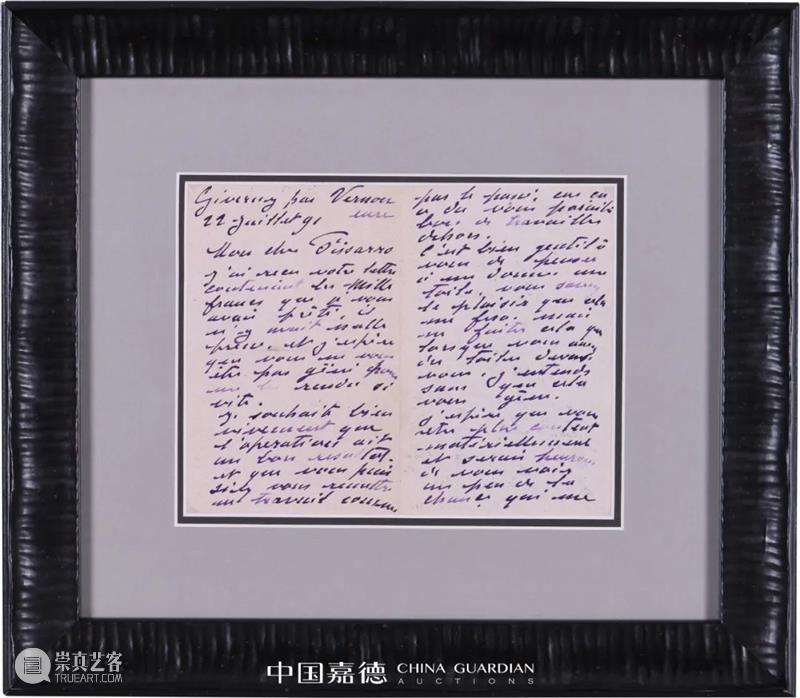 Giverny par Vernon
eure
22 Juillet 91
Mon cher Pissarro
j'ai reçu votre lettre
contenant les mille
francs que je vous
avais prêté, il
n'y avait nulle
presse et j'espère
que vous ne vous
être pas gêné pour
me les rendre si
vite.
Je souhaite bien
vivement que
l'opération ait
un bon resultat
et que vous puis
siez vous remettre
au travail comme
par le passé, car ça
a du vous paraître
bon de travailler
dehors.
C'est bien gentil à
vous de penser
à me donner une
toile, vous savez
le plaisir que cela
me fera. mais
ne faites cela que
lorsque vous aurez
des toiles devant
vous. j'entends
sans que cela
vous gêne.
J'espère que vous
être plus content
matériellement
et serais heureux
de vous voir
un peu de la
chance qui me
崇真艺客
TRUEART.COM
中国嘉德 CHINA GUARDIAN
AUCTIONS